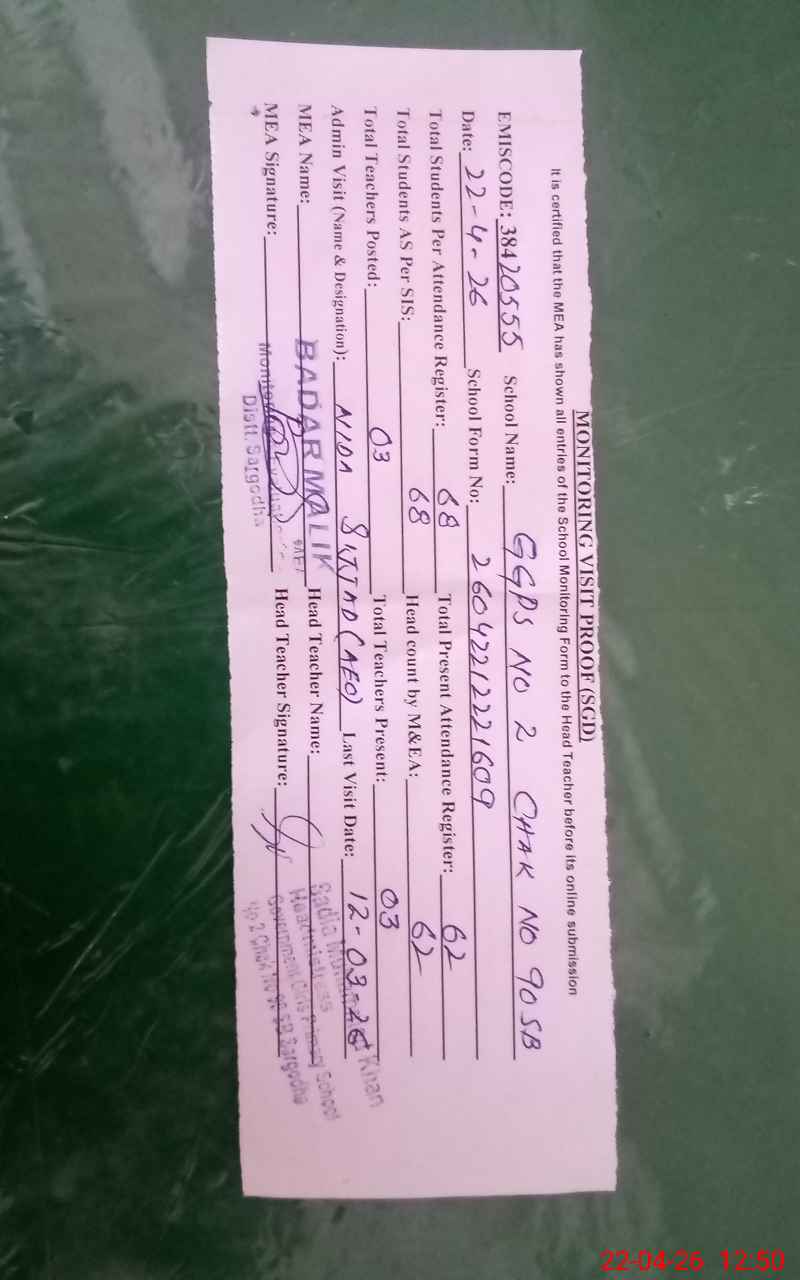 MONITORING VISIT PROOF (SGD)
It is certified that the MEA has shown all entries of the School Monitoring Form to the Head Teacher before its online submission
EMISCODE: 38420555 School Name: GGPS NO 2 CHAK NO 90 SB
Date: 22-4-26 School Form No: 26042212221609
Total Students Per Attendance Register: 68 Total Present Attendance Register: 62
Total Students AS Per SIS: 68 Head count by M&EA: 62
Total Teachers Posted: 03 Total Teachers Present: 03
Admin Visit (Name & Designation): NIDA SAJJAD (AEO) Last Visit Date: 12-03-26
MEA Name: BADAR MALIK Head Teacher Name:
MEA Signature: Head Teacher Signature:
Distt. Sargodha
Sadia Khan
Headmistress
Government Girls Primary School
No 2 Chak No 90 SB Sargodha
22-04-26 12:50